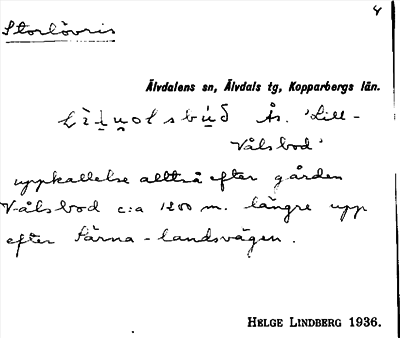 4
Storlövris
Älvdalens sn, Älvdals tg, Kopparbergs län.
Ås. 'Lill-
Vålsbod'
uppkallelse alltså efter gården
Vålsbod c:a 1200 m. längre upp
efter Särna-landsvägen.
HELGE LINDBERG 1936.